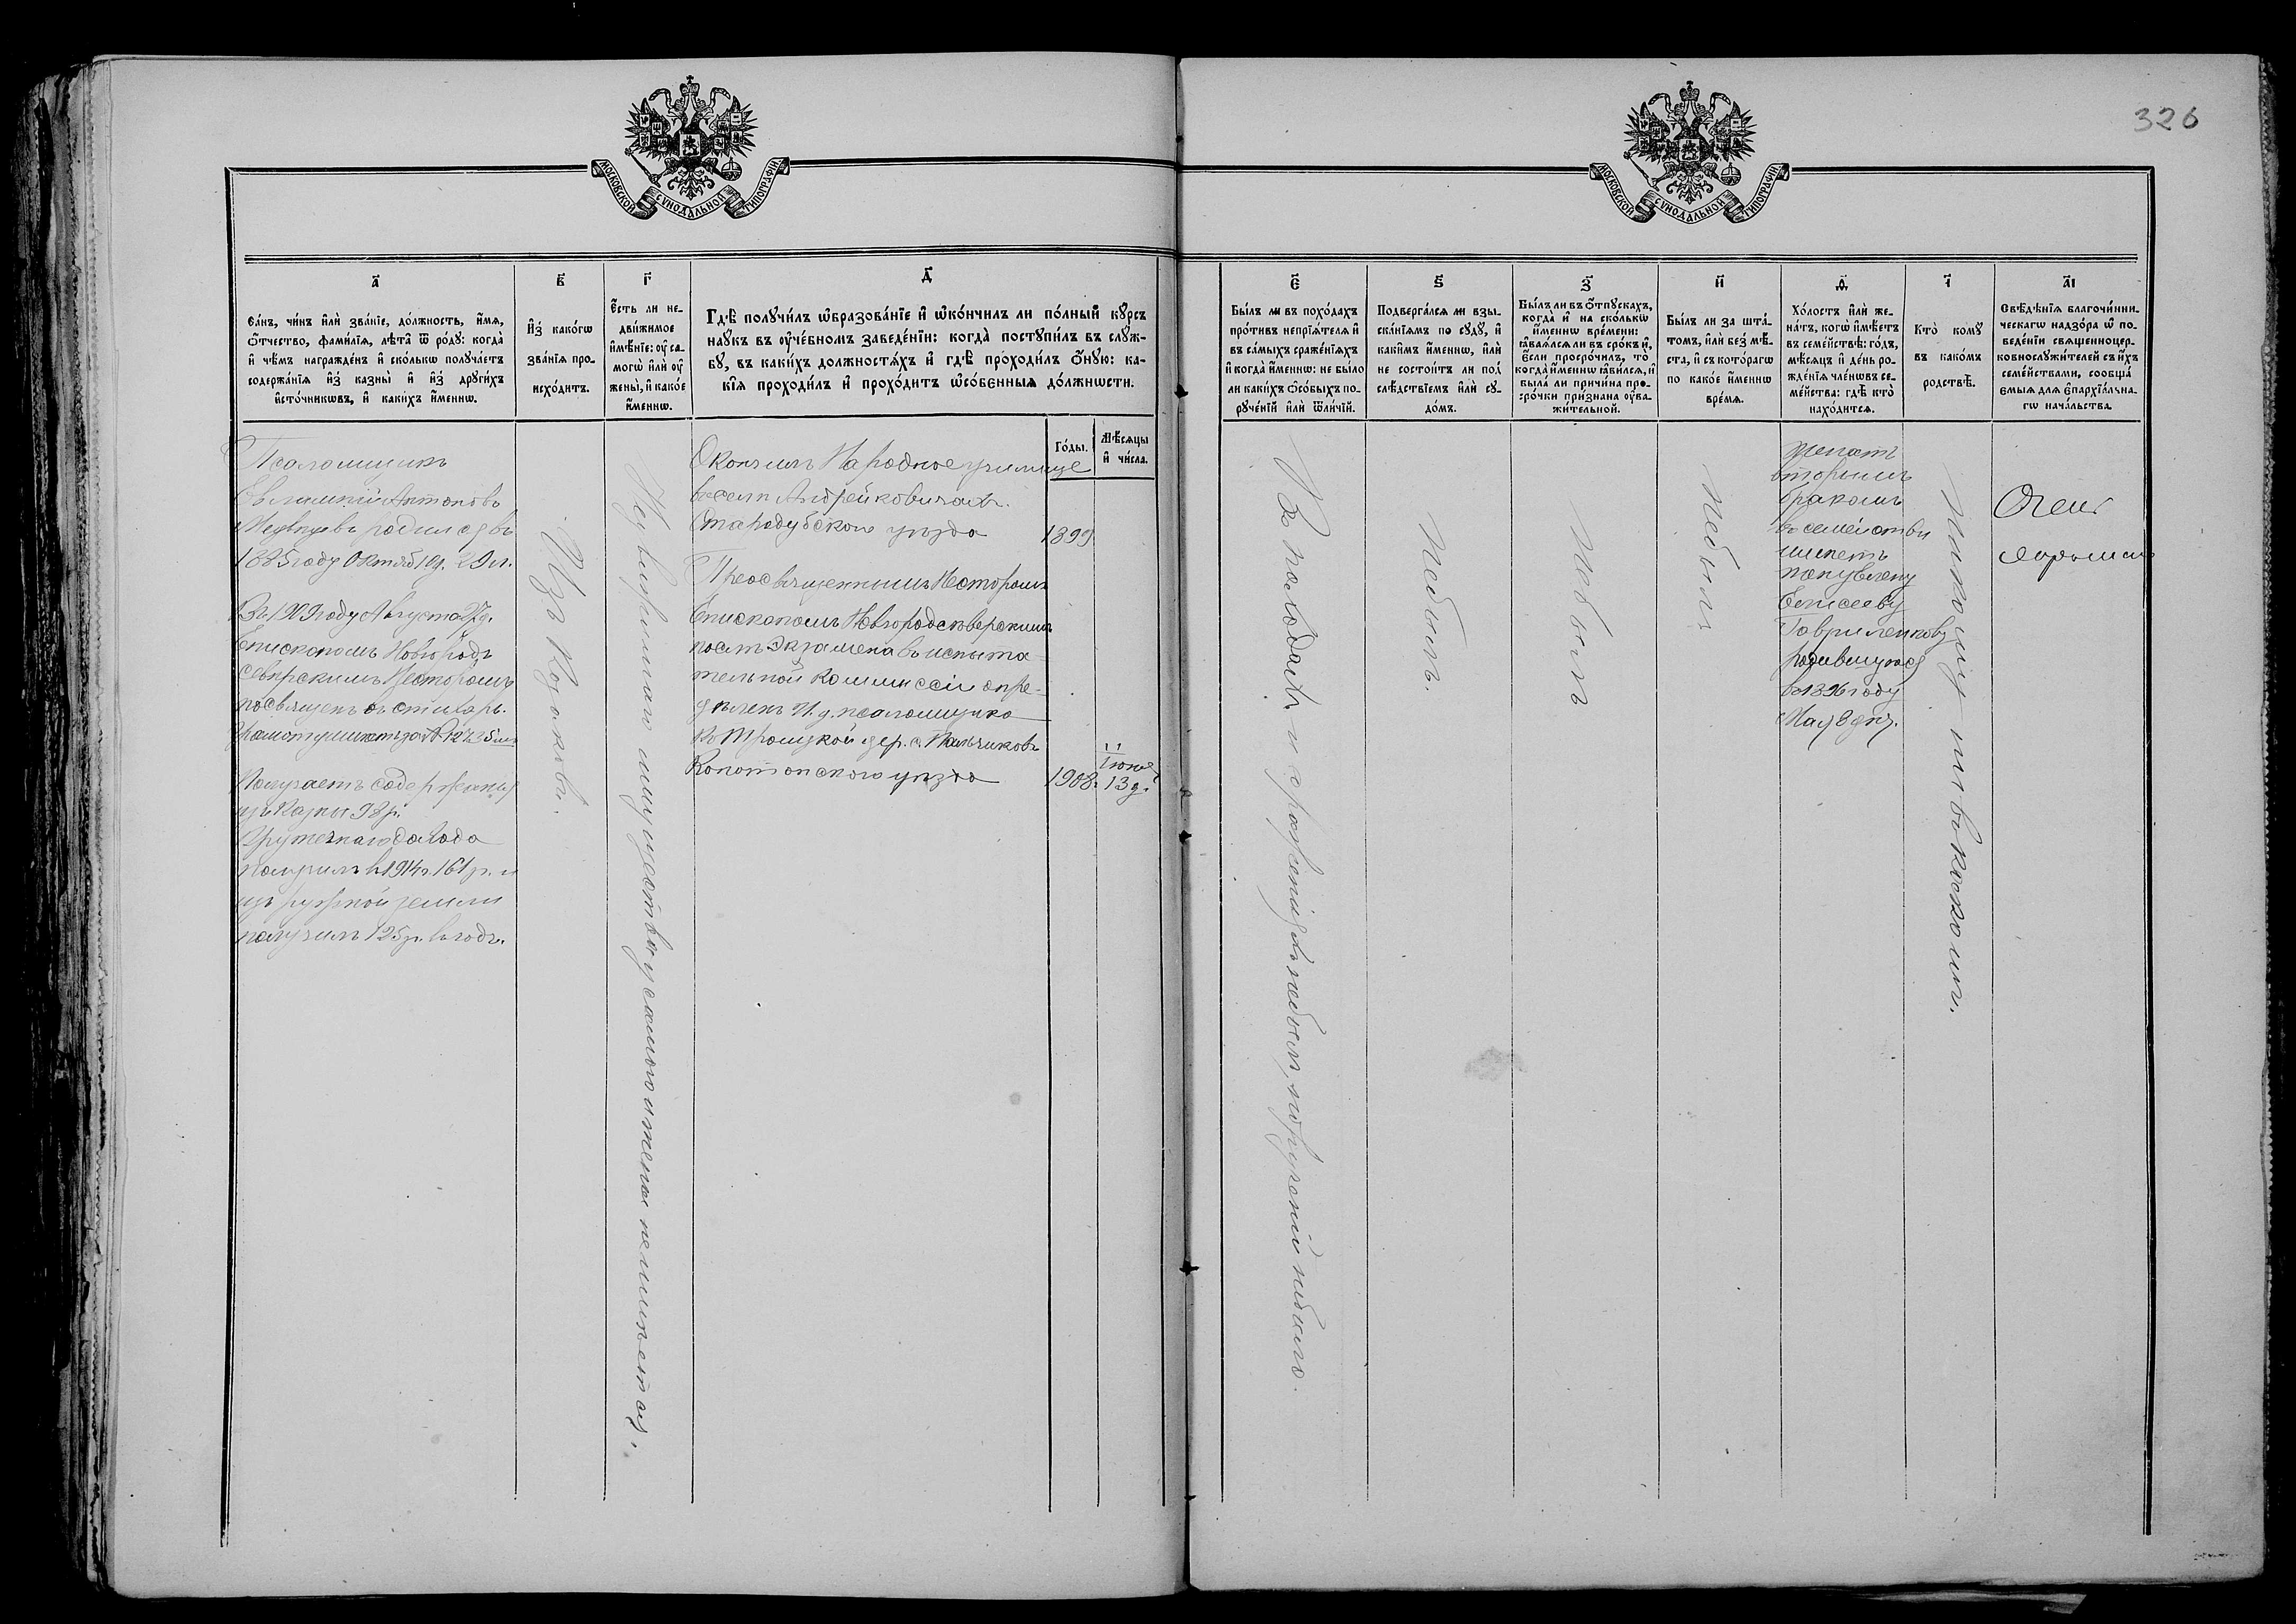 326
МОСКОВСКОЙ СѴНОДАЛЬНОЙ ТИПОГРАФІИ
МОСКОВСКОЙ СѴНОДАЛЬНОЙ ТИПОГРАФІИ
а҃
Са́нъ, чи́нъ и҆лѝ зва́нїе, до́лжность, и҆́мѧ,
ѻ҆́тчество, фами́лїѧ, лѣ́та ѿ ро́дꙋ: когда̀
и҆ чѣ́мъ награжде́нъ и҆ ско́лькѡ полꙋча́етъ
содержа́нїѧ и҆з̾ казны̀ и҆ и҆з̾ дрꙋги́хъ
и҆сто́чникѡвъ, и҆ каки́хъ и҆́меннѡ.
в҃
И҆з̾ како́гѡ
зва́нїѧ про-
исхо́дитъ.
г҃
Є҆́сть ли не-
дви́жимое
и҆мѣ́нїе: ᲂу҆ са-
могѡ̀ и҆лѝ ᲂу҆
жены̀, и҆ како́е
и҆́меннѡ.
д҃
Гдѣ̀ полꙋчи́лъ ѡ҆бразова́нїе и҆ ѡ҆ко́нчилъ ли по́лный кꙋ́рсъ
наꙋ́къ въ ᲂу҆че́бномъ заведе́нїи: когда̀ постꙋпи́лъ въ слꙋ́ж-
бꙋ, въ каки́хъ должностѧ́хъ и҆ гдѣ̀ проходи́лъ ѻ҆́нꙋю: ка-
кі́ѧ проходи́лъ и҆ прохо́дитъ ѡ҆со́бенныѧ до́лжнѡсти.
Го́ды.
Мѣ́сѧцы
и҆ чи́сла.
є҃
Бы́лъ ли въ похо́дахъ
про́тивъ непрїѧ́телѧ и҆
въ са́мыхъ сраже́нїѧхъ
и҆ когда̀ и҆́меннѡ: не бы́ло
ли каки́хъ ѻ҆со́быхъ по-
рꙋче́нїй и҆лѝ ѿли́чїй.
ѕ҃
Подверга́лсѧ ли взы-
ска́нїѧмъ по сꙋдꙋ̀, и҆
каки̑мъ и҆́меннѡ, и҆лѝ
не состои́тъ ли под̾
слѣ́дствїемъ и҆лѝ сꙋ-
до́мъ.
з҃
Бы́лъ ли въ ѻ҆́тпꙋскахъ,
когда̀ и҆ на ско́лькѡ
и҆́меннѡ вре́мени:
ꙗ҆влѧ́лсѧ ли въ сро́къ и҆,
є҆́сли просро́чилъ, то̀
когда̀ и҆́меннѡ ꙗ҆ви́лсѧ, и҆
была̀ ли причи́на про-
сро́чки при́знана ᲂу҆ва-
жи́тельной.
и҃
Бы́лъ ли за шта́-
томъ, и҆лѝ без̾ мѣ́-
ста, и҆ съ кото́рагѡ
по како́е и҆́меннѡ
вре́мѧ.
ѳ҃
Хо́лостъ и҆лѝ же-
на́тъ, когѡ̀ и҆мѣ́етъ
въ семе́йствѣ: го́дъ,
мѣ́сѧцъ и҆ де́нь ро-
жде́нїѧ чле́нѡвъ се-
ме́йства: гдѣ̀ кто̀
нахо́дитсѧ.
і҃
Кто̀ комꙋ̀
въ како́мъ
родствѣ̀.
а҃і
Свѣ́дѣнїѧ благочи́нни-
ческагѡ надзо́ра ѡ҆ по-
веде́нїи свѧщенноцер-
ковнослꙋжи́телей съ и҆́хъ
семе́йствами, сообща́-
емыѧ длѧ є҆парxїа́льна-
гѡ нача́льства.
Псаломщикъ
Евлампій Антоновъ
родился въ
1885 году Октяб 10 д. 29 л.
Въ 1909 году Августа 27 д.
Епископомъ Новгородъ
Сѣверскимъ Несторомъ
посвященъ въ стихарь.
Грамоту имѣетъ за №
Получаетъ содержанія
изъ Казны 98 р.
Кружечнаго дохода
получилъ в 1914 г. 161 р. и
изъ ружной земли
получилъ 125 р. въ годъ.
Изъ Козаковъ.
Недвижимаго имущества у самого и жены не имѣется.
Окончилъ Народное училище
въ селѣ Андрейковичахъ
Стародубскаго уѣзда 1899
Преосвященнымъ Несторомъ
Епископомъ Новгородсѣверскимъ
послѣ Экзамена въ испыта-
тельной Коммиссіи опре-
дѣленъ И. д. псаломщика
къ Троицкой цер. с. Пальчиковъ
Конотопскаго уѣзда 1908 г. Іюня 13 д.
Въ походахъ и сраженіяхъ небылъ, порученій небыло.
Небылъ.
Небылъ
Небылъ
Женатъ
вторымъ
бракомъ
въ семействѣ
имѣетъ
жену Елену
Елисееву
Гавриленкову
родившуюся
въ 1896 году
Мая 8 дня.
Никому ни въ какомъ.
Очень
хорошаго